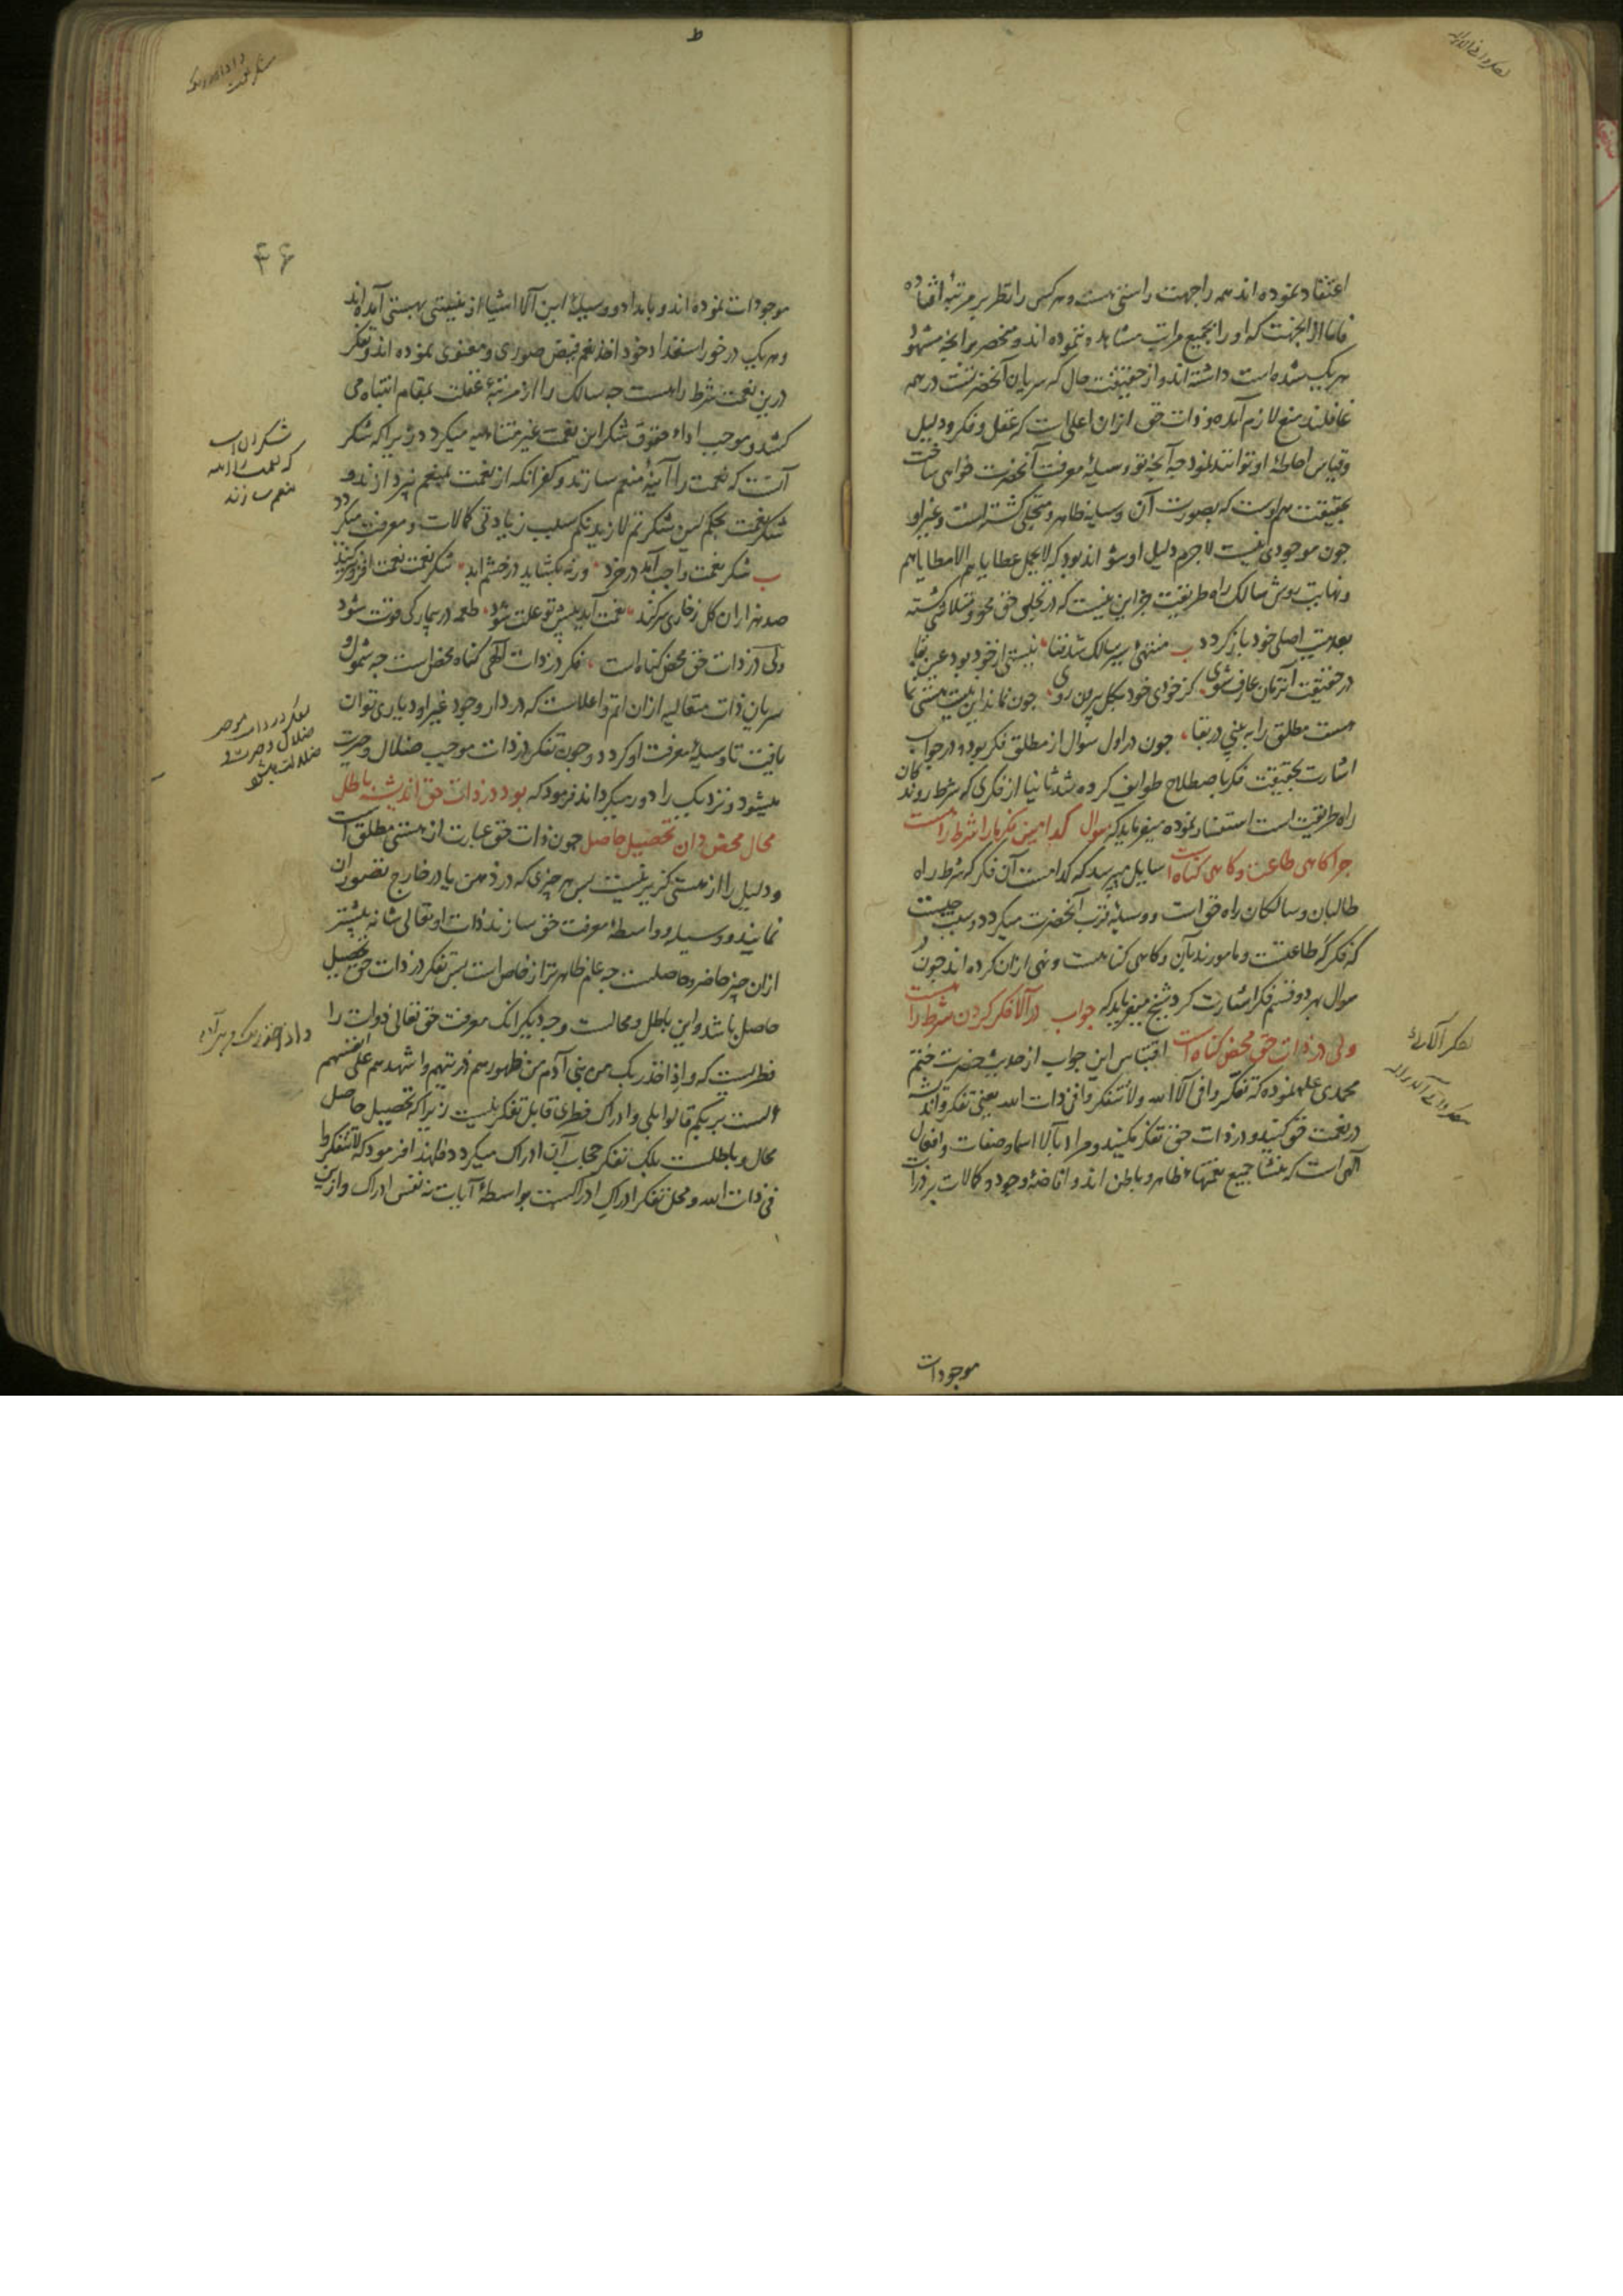 اعتقاد نموده اند همه را جهت راستی هست و هر کسی را نظر بر مرتبه افتاده
فاما از آنجهت که او را بجمیع مراتب مشاهده ننموده اند و منحصر بر آنچه مشهود
هر یک شده است داشته اند و از حقیقت حال که سریان آنحضرتست در همه
غافلند منع لازم آمد و ذات حق ازان اعلی است که عقل و فکر و دلیل
و قیاس احاطهٔ او توانند نمود چه آنچه تو وسیلهٔ معرفت آنحضرت خواهی ساخت
بحقیقت هم اوست که بصورت آن وسیله ظاهر و متجلی گشته است و غیر او
چون موجودی نیست لاجرم دلیل او نتواند بود که لا یحمل عطایاهم الا مطایاهم
و نهایت روش سالک راه طریقت جز این نیست که در تجلی حق محو و متلاشی گشته
بعدمیت اصلی خود باز گردد ب منتهیٔ سیر سالک شد فنا نیستی از خود بود عین بقا
در حقیقت آنزمان عارف شوی کز خودی خود بکل بیرون روی چون نماند این نیست هستی نما
هست مطلق را به بینی در بقا چون در اول سوال از مطلق فکر بود و در جواب
اشارت بحقیقت فکر باصطلاح طوایف کرده شد ثانیا از فکری که شرط روندگان
راه طریقت است استفسار نموده میفرماید که سوال کدامین فکر ما را شرط راهست
چرا گاهی طاعت و گاهی گناه است سایل میپرسد که کدامست آن فکر که شرط راه
طالبان و سالکان راه حق است و وسیلهٔ قرب آنحضرت میگردد و سبب چیست
که فکر گه طاعتست و مامورند بآن و گاهی گناهست و نهی ازان کرده اند چون در
سوال بهر دو قسم فکر اشارت کرد شیخ میفرماید که جواب در آلا فکر کردن شرط راهست
ولی در ذات حق محض گناه است اقتباس این جواب از حدیث حضرت ختم
محمدی علم نموده که تفکروا فی آلاء الله ولا تتفکروا فی ذات الله یعنی تفکر و اندیشه
در نعمت حق کنید و در ذات حق تفکر مکنید و مراد بآلا اسما و صفات و افعال
الهی است که منشا جمیع نعمتهاء ظاهر و باطن اند و افاضهٔ وجود و کمالات بر ذرات
تفکر آلا راه
موجودات
۴۶
موجودات نموده اند و بامداد و وسیلهٔ این آلا اشیا از نیستی بهستی آمده اند
و هر یک در خور استعداد خود اخذ نعم فیض صوری و معنوی نموده اند و تفکر
درین نعمت شرط راهست چه سالک را از مرتبهٔ غفلت بمقام انتباه می
کشد و موجب اداء حقوق شکر این نعمت غیر متناهیه میگردد زیرا که شکر
آنست که نعمت را آینهٔ منعم سازند و کفر آنکه از نعمت بمنعم نپردازند و
شکر نعمت بحکم لئن شکرتم لازیدنکم سبب زیادتی کمالات و معرفت میگردد
ب شکر نعمت واجب آمد در خرد ورنه بگشاید در خشم ابد شکر نعمت نعمت افزون کند
صد هزاران گل ز خاری سر کند نعمت آید پیش تو علت شود طعمه در بیمار کی قوت شود
ولی در ذات حق محض گناه است فکر در ذات الهی گناه محض است چه شمول و
سریان ذات متعالیه ازان اتم و اعلاست که در دار وجود غیر او دیاری توان
یافت تا وسیلهٔ معرفت او گردد و چون تفکر در ذات موجب ضلال و حیرت
میشود و نزدیک را دور میگرداند فرمود که بود در ذات حق اندیشه باطل
محال محض دان تحصیل حاصل چون ذات حق عبارت از هستی مطلق است
و دلیل را از هستی گزیر نیست پس هر چیزی که در ذهن یا در خارج تصور آن
نمایند و وسیله و واسطهٔ معرفت حق سازند ذات او تعالی شانه پیشتر
ازان چیز حاضر و حاصلست چه عام ظاهرتر از خاص است پس تفکر در ذات حق تحصیل
حاصل باشد و این باطل و محالست وجه دیگر آنک معرفت حق تعالی ذوات را
فطریست که و اذ اخذ ربک من بنی آدم من ظهورهم ذریتهم و اشهدهم علی انفسهم
الست بربکم قالوا بلی و ادراک فطری قابل تفکر نیست زیرا که تحصیل حاصل
محال و باطلست بلک تفکر حجاب آن ادراک میگردد فلهذا فرمود که لا تتفکروا
فی ذات الله و محل تفکر ادراک ادراکست بواسطهٔ آیات نه نفس ادراک و ازین
شکر آن است
که نعمت را آینه
منعم سازند
تفکر در ذات موجب
ضلال و حیرت و
ضلالت میشود